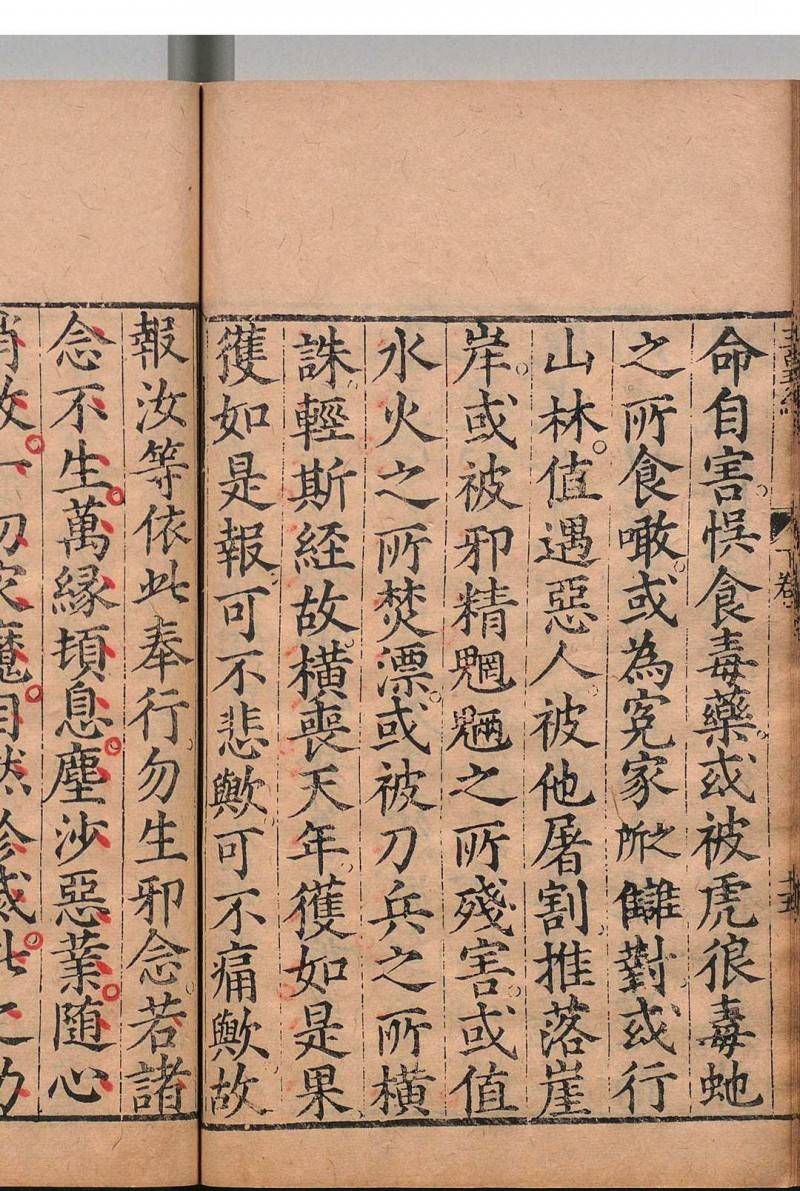 命自害悞食毒藥或被虎狼毒虵
之所食噉或為冤家之所讎對或行
山林值遇惡人被他屠割推落崖
岸或被邪精魍魎之所殘害或值
水火之所焚漂或被刀兵之所橫
誅輕斯經故橫喪天年獲如是果
獲如是報可不悲歟可不痛歟故
報汝等依此奉行勿生邪念若諸
念不生萬緣頓息塵沙惡業隨心